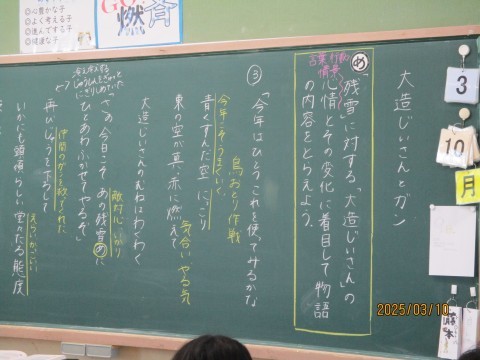 大造じいさんとガン
め
「残雪」に対する「大造じいさん」の
言葉 行動 情景
心情とその変化に着目して物語
の内容をとらえよう。
③
「今年はひとつ、これを使ってみるかな
鳥おとり作戦
今年こそうまくいく
青くすんだ空 にっこり
東の空が真っ赤に燃えて
気合い やる気
大造じいさんのむねはわくわく
「さあ、今日こそ、あの残雪めに
ひとあわふかせてやるぞ」
敵対心 いかり
再びじゅうを下ろして
仲間のガンを救ってくれた
いかにも頭領らしい堂々たる態度
えらい かっこいい
◎心豊かな子
◎よく考える子
◎進んでする子
◎健康な子
燃
3
10
月
月
2025/03/10